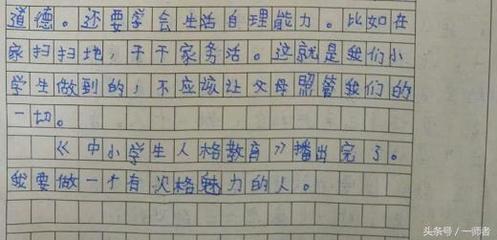 道德。还要学会生活自理能力。比如在
家扫扫地，干干家务活。这就是我们小
学生做到的，不应该让父母照管我们的
一切。
《中小学生人格教育》播出完了。
我要做一个有人格魅力的人。
头条号／一师者